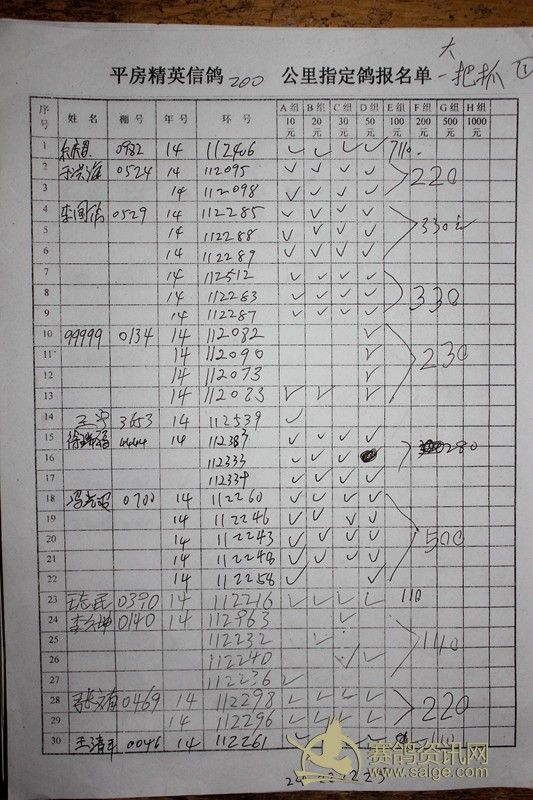 大
平房精英信鸽 200 公里指定鸽报名单 一把抓 ①
序号 姓 名 棚 号 年 号 环 号 A 组 10 元 B 组 20 元 C 组 30 元 D 组 50 元 E 组 100 元 F 组 200 元 G 组 500 元 H 组 1000 元
1 0982 14 112406 ✓ ✓ ✓ ✓ 110.
2 0524 14 112095 ✓ ✓ ✓ ✓ 220
3 14 112098 ✓ ✓ ✓ ✓
4 0529 14 112285 ✓ ✓ ✓ ✓
5 14 112288 ✓ ✓ ✓ ✓ 330元
6 14 112289 ✓ ✓ ✓ ✓
7 14 112512 ✓ ✓ ✓ ✓
8 14 112283 ✓ ✓ ✓ ✓ 330
9 14 112287 ✓ ✓ ✓ ✓
10 99999 0134 14 112082 ✓
11 14 112090 ✓ 230
12 14 112073 ✓
13 14 112083 ✓ ✓ ✓
14 王宇 3653 14 112539 ✓
15 4444 14 112387 ✓ ✓ ✓ ✓
16 112333 ✓ ✓ ✓ 280
17 112334 ✓ ✓ ✓ ✓
18 0700 14 112260 ✓ ✓ ✓ ✓
19 14 112246 ✓ ✓ ✓ ✓
20 14 112243 ✓ ✓ ✓ ✓ 500
21 14 112248 ✓ ✓ ✓ ✓
22 14 112258 ✓ ✓
23 王志民 0390 14 112216 ✓ ✓ ✓ ✓ 110
24 0140 14 112963 ✓
25 112232 ✓ 140
26 112240 ✓
27 112236 ✓
28 0469 14 112298 ✓ ✓ ✓ ✓ 220
29 14 112296 ✓ ✓ ✓ ✓
30 王清平 0046 14 112261 ✓ ✓ ✓ ✓ 110
赛鸽资讯网
www.saige.com